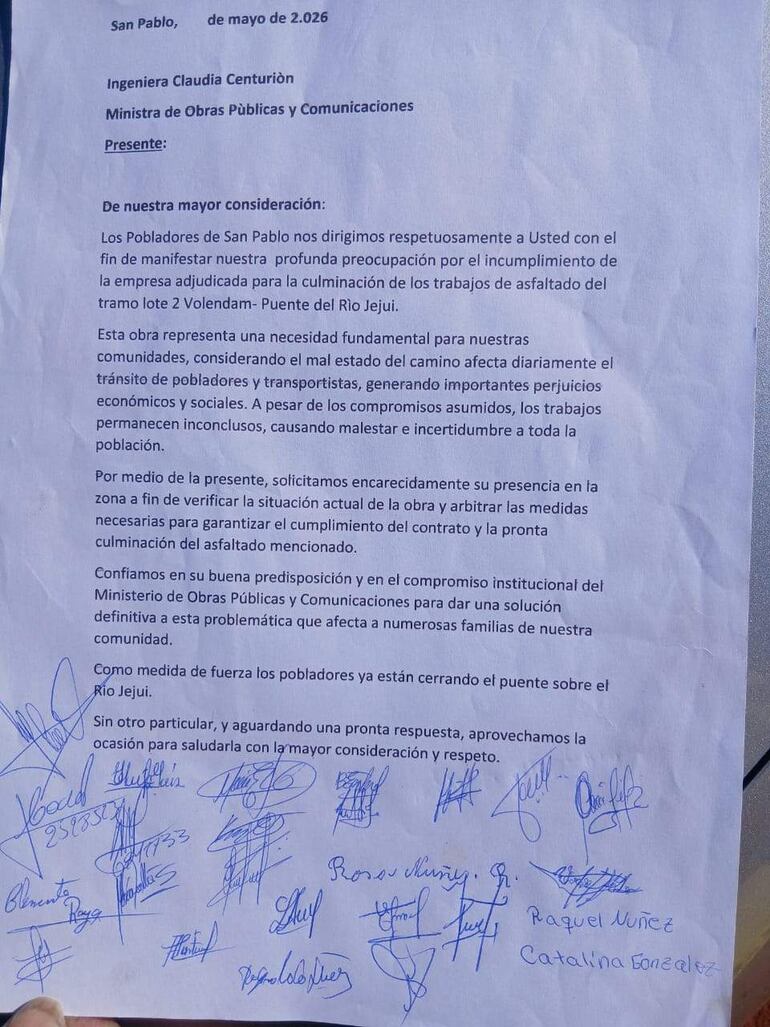 San Pablo, de mayo de 2.026
Ingeniera Claudia Centuriòn
Ministra de Obras Pùblicas y Comunicaciones
Presente:
De nuestra mayor consideración:
Los Pobladores de San Pablo nos dirigimos respetuosamente a Usted con el
fin de manifestar nuestra profunda preocupación por el incumplimiento de
la empresa adjudicada para la culminación de los trabajos de asfaltado del
tramo lote 2 Volendam- Puente del Rìo Jejui.
Esta obra representa una necesidad fundamental para nuestras
comunidades, considerando el mal estado del camino afecta diariamente el
tránsito de pobladores y transportistas, generando importantes perjuicios
económicos y sociales. A pesar de los compromisos asumidos, los trabajos
permanecen inconclusos, causando malestar e incertidumbre a toda la
población.
Por medio de la presente, solicitamos encarecidamente su presencia en la
zona a fin de verificar la situación actual de la obra y arbitrar las medidas
necesarias para garantizar el cumplimiento del contrato y la pronta
culminación del asfaltado mencionado.
Confiamos en su buena predisposición y en el compromiso institucional del
Ministerio de Obras Públicas y Comunicaciones para dar una solución
definitiva a esta problemática que afecta a numerosas familias de nuestra
comunidad.
Como medida de fuerza los pobladores ya están cerrando el puente sobre el
Rio Jejui.
Sin otro particular, y aguardando una pronta respuesta, aprovechamos la
ocasión para saludarla con la mayor consideración y respeto.
Rosa Nuñez. R.
Raquel Nuñez
Catalina Gonzalez